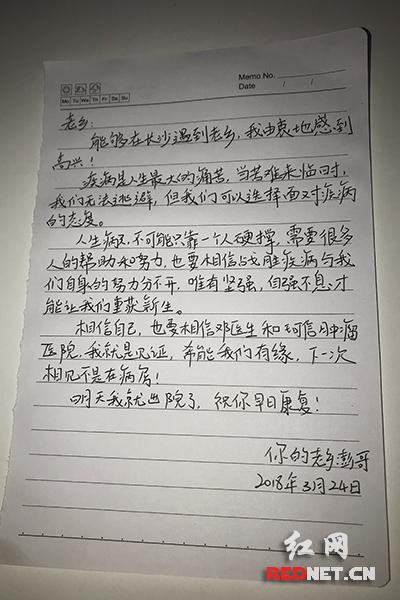 Memo No.
Date / /
Mo Tu We Th Fr Sa Su
老乡:
能够在长沙遇到老乡,我由衷地感到
高兴!
疾病是人生最大的痛苦,当苦难来临时,
我们无法逃避,但我们可以选择面对疾病
的态度。
人生病了,不可能只靠一个人硬撑,需要很多
人的帮助和努力,也要相信战胜疾病与我
们自身的努力分不开,唯有坚强,自强不息,才
能让我们重获新生。
相信自己,也要相信邓医生和珂信肿瘤
医院,我就是见证,希能我们有缘,下一次
相见不是在病房!
明天我就出院了,祝你早日康复!
你的老乡彭哥
2018年3月24日
红网
REDNET.CN